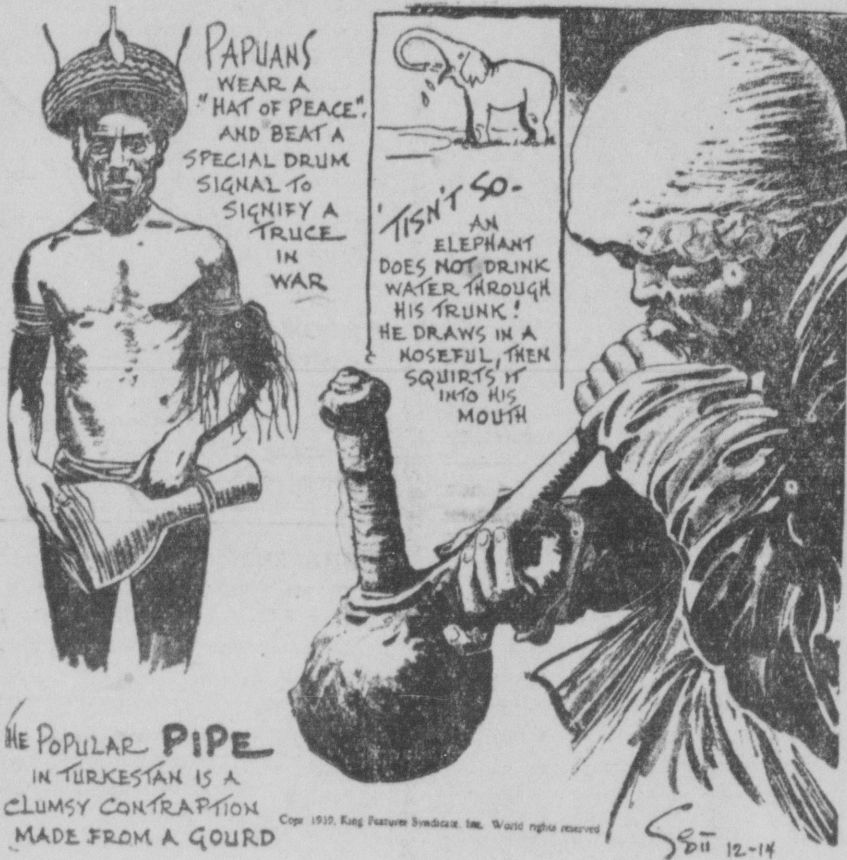 PAPUANS
WEAR A
"HAT OF PEACE".
AND BEAT A
SPECIAL DRUM
SIGNAL TO
SIGNIFY A
TRUCE
IN
WAR
'TISN'T SO-
AN
ELEPHANT
DOES NOT DRINK
WATER THROUGH
HIS TRUNK!
HE DRAWS IN A
NOSEFUL, THEN
SQUIRTS IT
INTO HIS
MOUTH
HE POPULAR PIPE
IN TURKESTAN IS A
CLUMSY CONTRAPTION
MADE FROM A GOURD
Copr. 1939, King Features Syndicate, Inc., World rights reserved
12-14